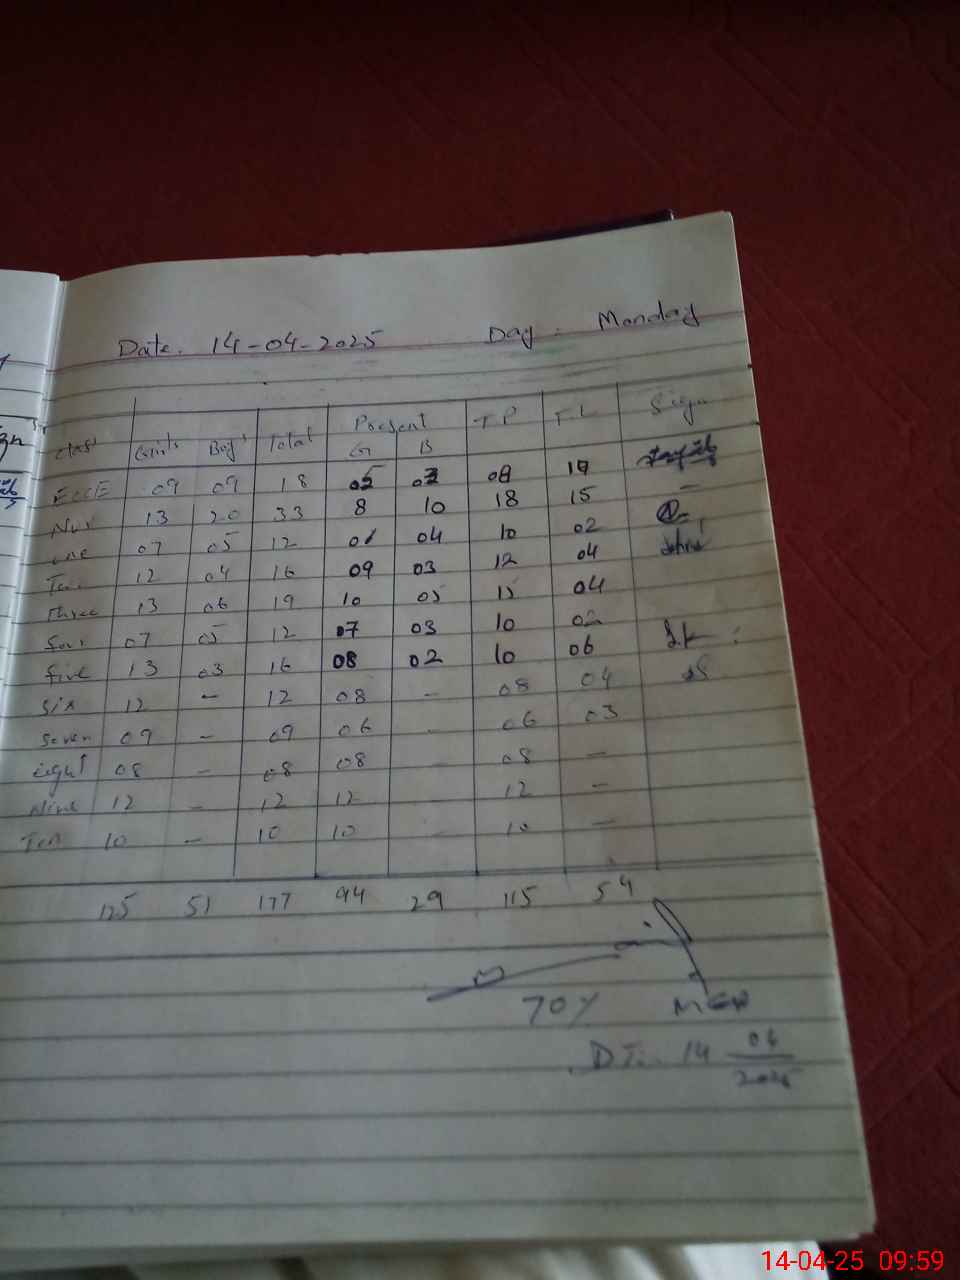 Date. 14-04-2025 Day. Monday
Class Girls Boys Total Present T P T L Sign
G B
ECCE 09 09 18 05 03 08 10
Nur 13 20 33 8 10 18 15 -
One 07 05 12 04 10 02
Two 12 04 16 09 03 12 04
Three 13 06 19 10 05 15 04
four 07 05 12 07 03 10 02
five 13 03 16 08 02 10 06
Six 12 - 12 08 - 08 04
Seven 09 - 09 06 - 06 03
eight 08 - 08 08 - 08 -
Nine 12 - 12 12 - 12 -
Ten 10 - 10 10 - 10 -
125 51 177 94 29 115 54
70% MEA
DT. 14 04
2025
14-04-25 09:59